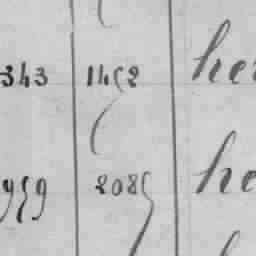 343 1452 he
959 2085 he